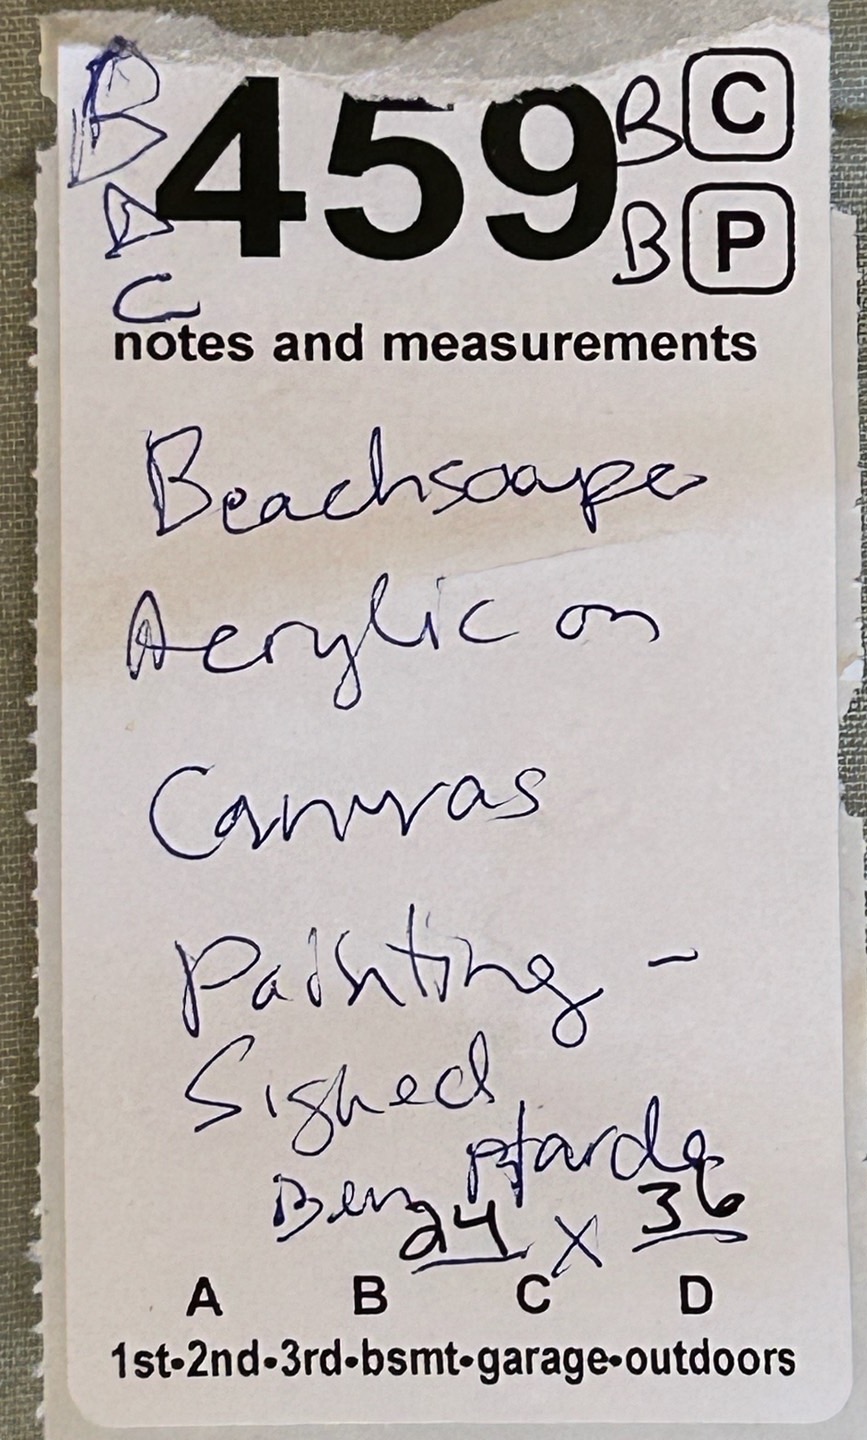 B 459 B C
A B P
C
notes and measurements
Beachscape
Acrylic on
Canvas
Painting -
Signed
Ben
24 x 36
A B C D
1st•2nd•3rd•bsmt•garage•outdoors